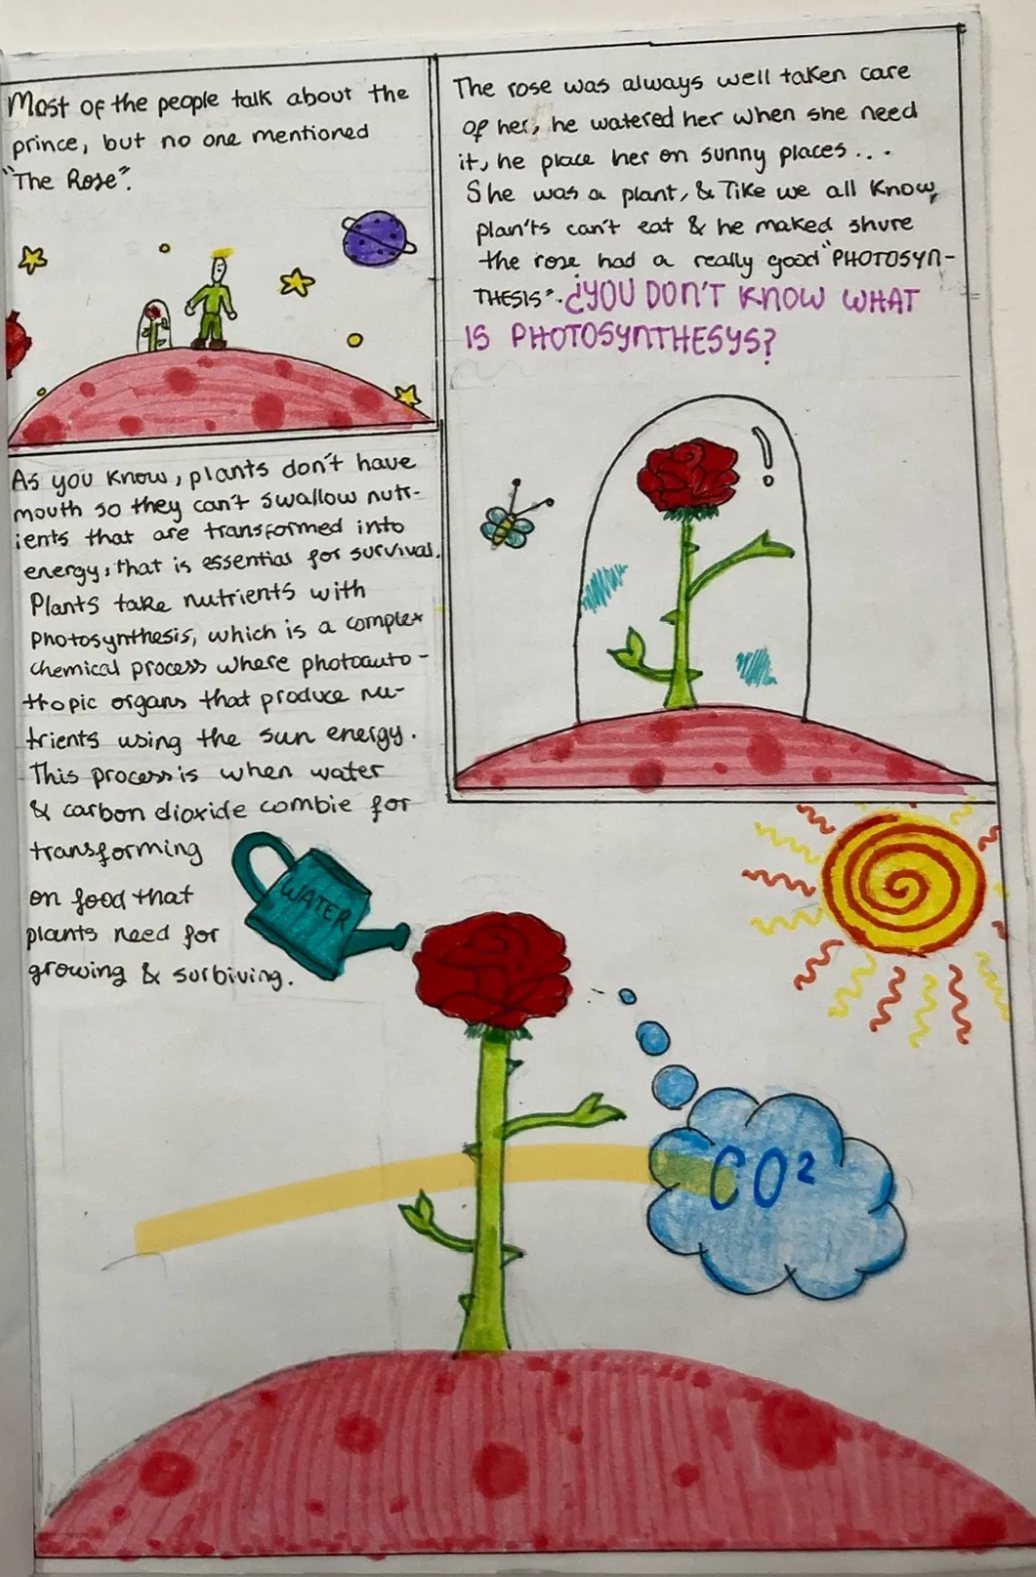 Most of the people talk about the
prince, but no one mentioned
"The Rose".
The rose was always well taken care
of her, he watered her when she need
it, he place her on sunny places...
She was a plant, & like we all know,
plan'ts can't eat & he maked shure
the rose had a really good "PHOTOSYN-
THESIS". ¿YOU DON'T KNOW WHAT
IS PHOTOSYNTHESYS?
As you know, plants don't have
mouth so they can't swallow nutr-
ients that are transformed into
energy, that is essential for survival.
Plants take nutrients with
photosynthesis, which is a complex
chemical process where photoauto-
tropic organs that produce nu-
trients using the sun energy.
This process is when water
& carbon dioxide combie for
transforming
on food that
plants need for
growing & surbiving.
WATER
CO²